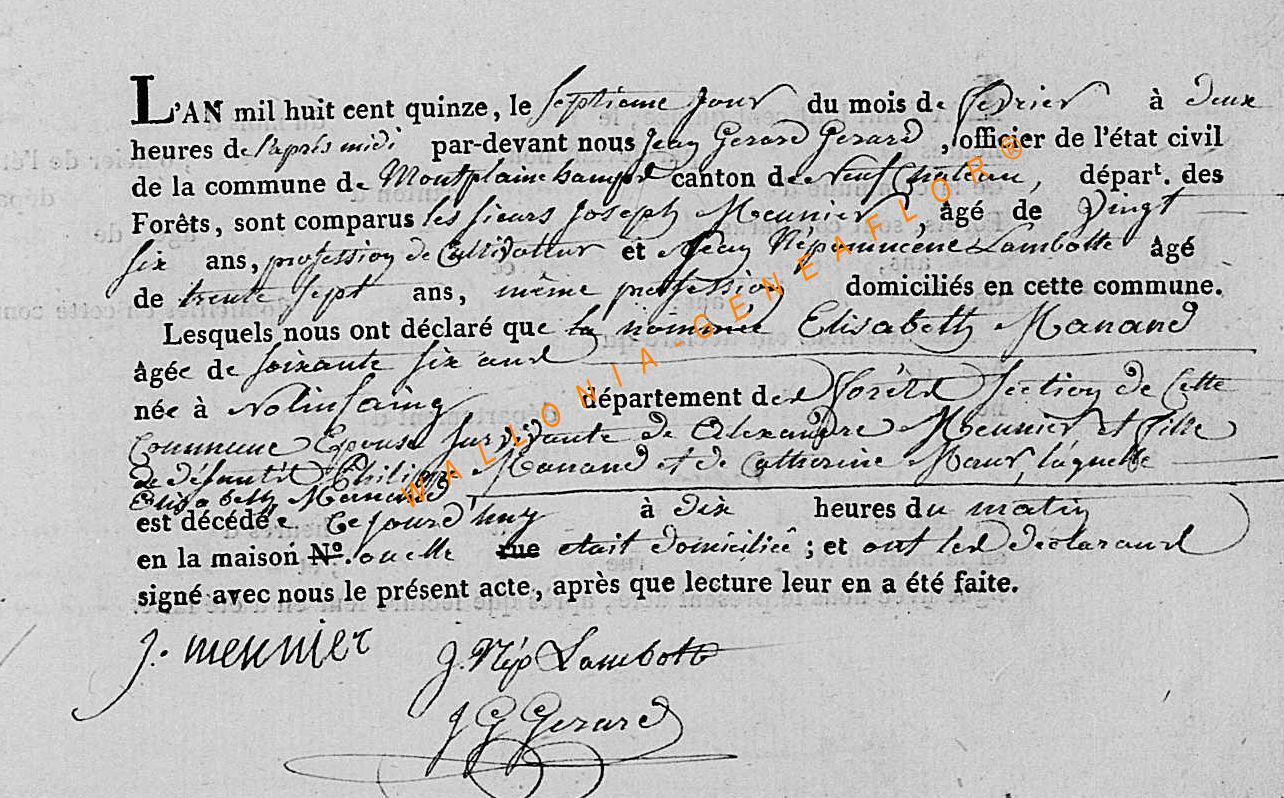 L'AN mil huit cent quinze, le septieme jour du mois de fevrier à deux
heures de l'après midi par-devant nous Jean Gerard Gerard, officier de l'état civil
de la commune de Montplainchamps canton de Neufchateau, départ. des
Forêts, sont comparus les sieurs Joseph Meunier âgé de Vingt
six ans, profession de Cultivateur et Jean Népomucène Lambotte âgé
de trente sept ans, même profession domiciliés en cette commune.
Lesquels nous ont déclaré que la nommée Elisabeth Manand
âgée de soixante six ans
née à Nolinfaing département des forêts section de Cette
Commune Epouse survivante de Alexandre Meunier et fille
de défunt Philippe Manand et de Catherine laquelle
Elisabeth Manand
est décédée Ce jourd'huy à dix heures du matin
en la maison N.º ou elle rue etait domiciliée ; et ont les déclarans
signé avec nous le présent acte, après que lecture leur en a été faite.
J. meunier J. Nép Lambotte
J G Gerard
WALLONIA-GENEAFLOR®